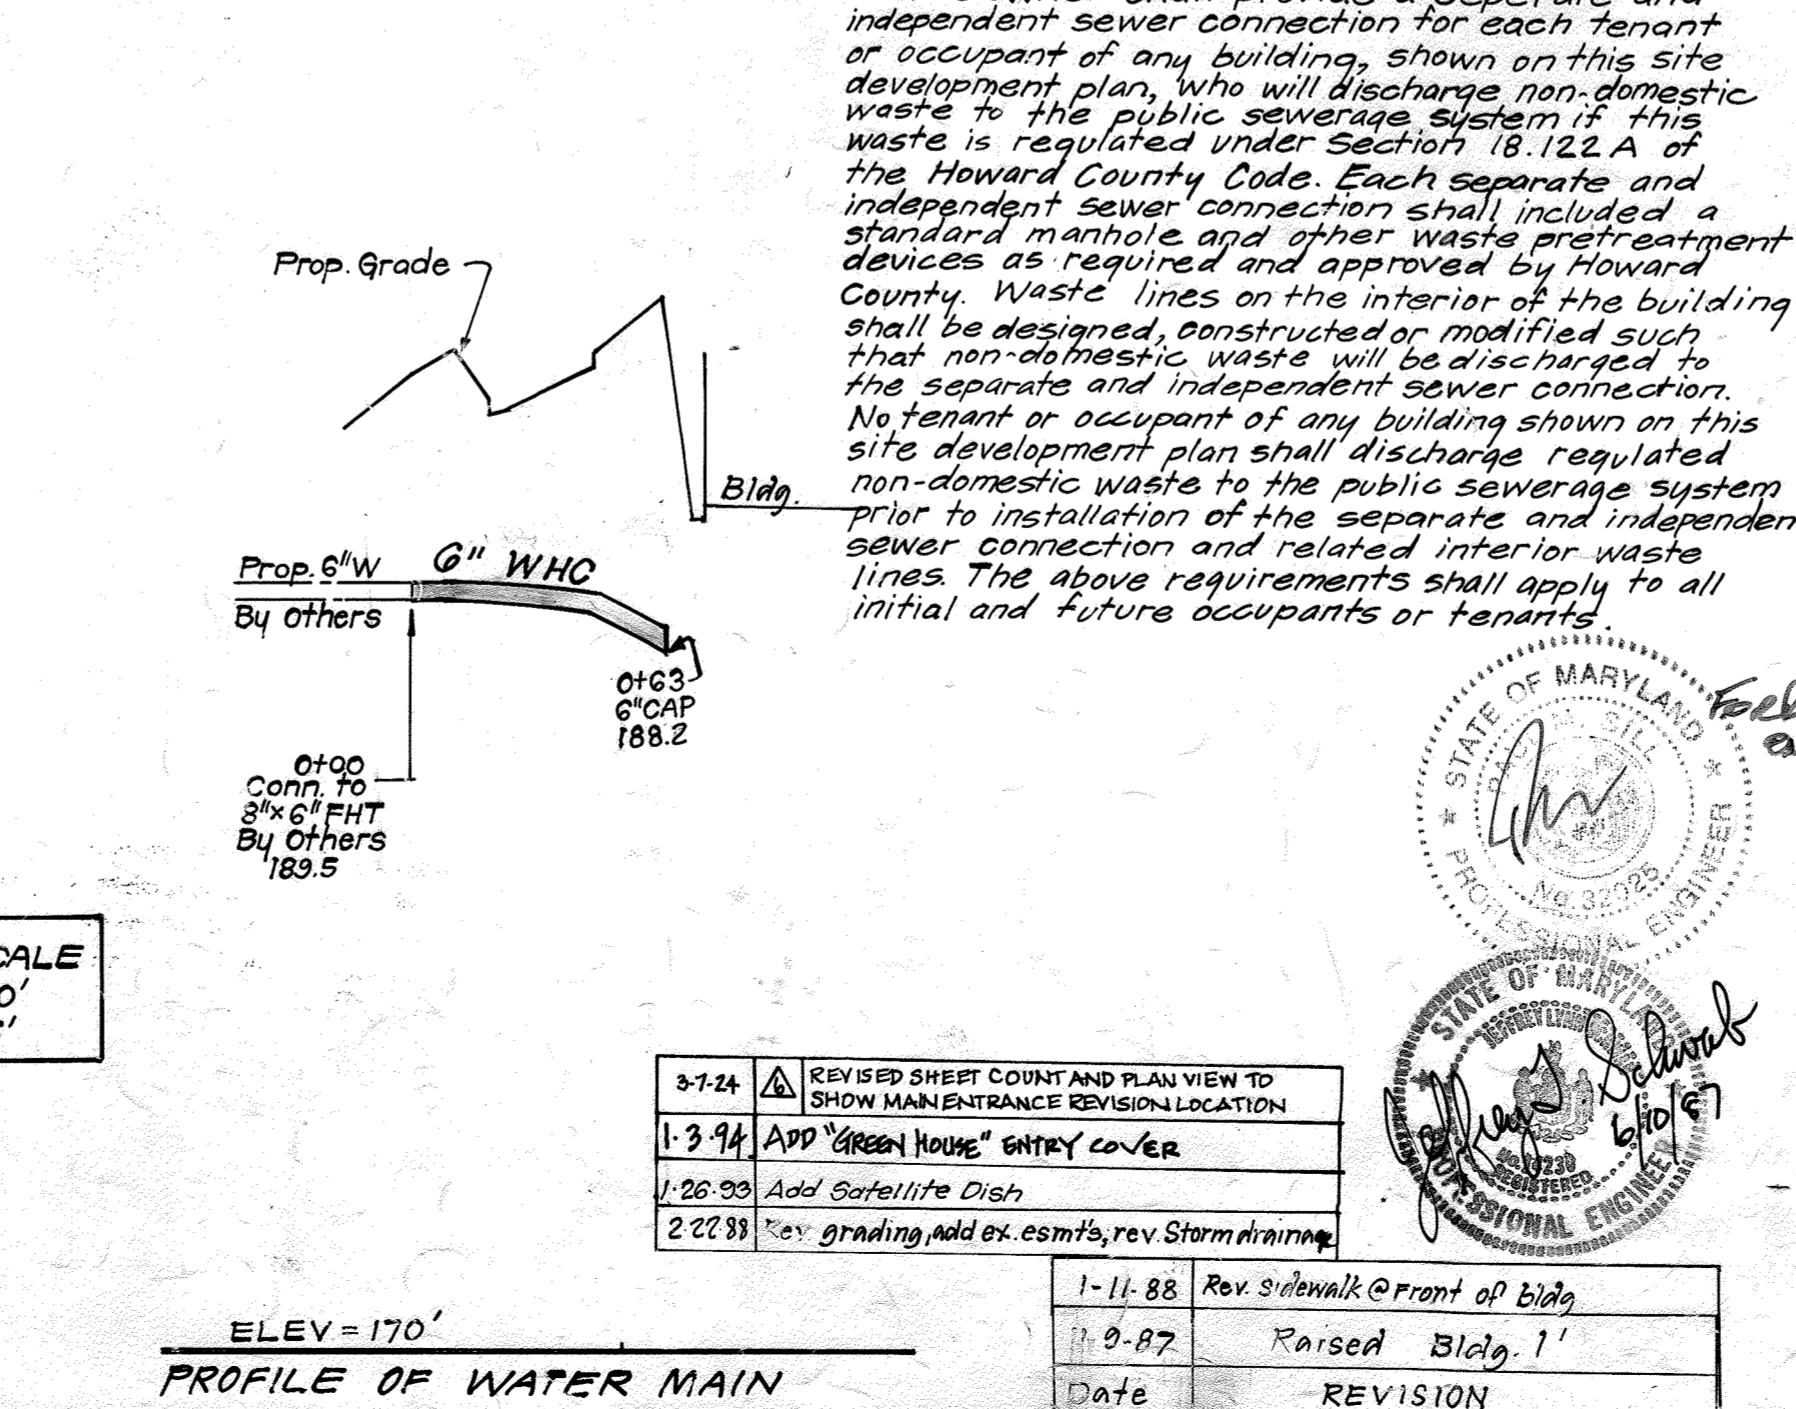 independent sewer connection for each tenant
or occupant of any building, shown on this site
development plan, who will discharge non-domestic
waste to the public sewerage system if this
waste is regulated under Section 18.122 A of
the Howard County Code. Each separate and
independent sewer connection shall included a
standard manhole and other waste pretreatment
devices as required and approved by Howard
County. Waste lines on the interior of the building
shall be designed, constructed or modified such
that non-domestic waste will be discharged to
the separate and independent sewer connection.
No tenant or occupant of any building shown on this
site development plan shall discharge regulated
non-domestic waste to the public sewerage system
prior to installation of the separate and independen
sewer connection and related interior waste
lines. The above requirements shall apply to all
initial and future occupants or tenants.
Prop. Grade
Bldg.
Prop. 6"W
6" WHC
By Others
0+63
6"CAP
188.2
0+00
Conn. to
8"x6" FHT
By Others
189.5
CALE
0'
STATE OF MARYLAND
M. SILL
No. 32025
PROFESSIONAL ENGINEER
STATE OF MARYLAND
JEFFREY LYNN
Jeffrey L. Schwab
6/10/87
REGISTERED
PROFESSIONAL ENGINEER
3-7-24 6 REVISED SHEET COUNT AND PLAN VIEW TO
SHOW MAIN ENTRANCE REVISION LOCATION
1-3-94 ADD "GREEN HOUSE" ENTRY COVER
1-26-93 Add Satellite Dish
2-22-88 Rev grading, add ex. esmt's, rev. Storm drainage
1-11-88 Rev. Sidewalk @ Front of bldg
9-87 Raised Bldg. 1'
Date REVISION
ELEV = 170'
PROFILE OF WATER MAIN